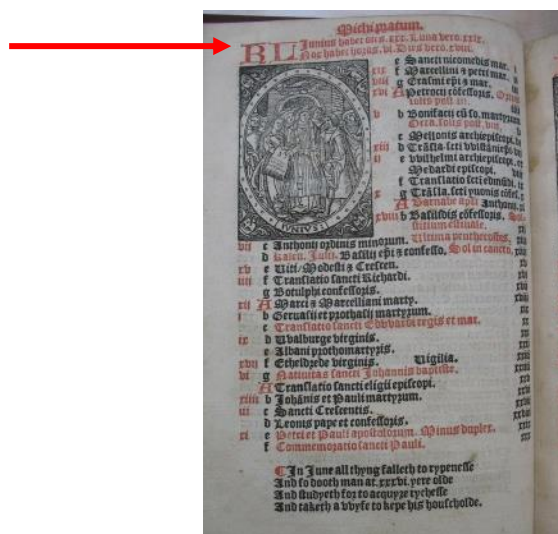 Michi pratum.
KL Junius habet dies. xxx. Luna vero. xxix.
Nox habet horas. vi. Dies vero. xviii.
e Sancti nicomedis mar. i
xix f Marcellini ⁊ petri mar. ii
viii g Erasmi epi ⁊ mar.
xvi A Petrocii cōfessoris.
v b Bonifacii cū so. martyrum
c Mellonis archiepiscopi.
xiii d Trāsla. scti vvlstani epi.
ii e vvilhelmi archiepiscopi.
Medardi episcopi.
f Translatio scti edmūdi.
x g Trāsla. scti yuonis cōfes.
A Barnabe apli Anthonii.
xviii b Basilidis cōfessoris. Sol-
stitium estiuale.
vii c Anthonii ordinis minorum. Ultima
d Kalen. Julii. Basilii epi ⁊ confesso. Sol in cancro.
xv e Viti/ Modesti ⁊ Crescen.
iiii f Translatio sancti Richardi.
g Botulphi confessoris.
xii A Marci ⁊ Marcelliani marty.
i b Geruasii et prothasii martyrum.
c Translatio sancti Edvvardi regis et mar.
ix d Walburge virginis.
e Albani prothomartyris.
xvii f Etheldrede virginis. Vigilia.
vi g Natiuitas sancti Johannis baptiste.
A Translatio sancti eligii episcopi.
xiiii b Johānis et Pauli martyrum.
iii c Sancti Crescentis.
d Leonis pape et confessoris.
xi e Petri et Pauli apostolorum. Minus duplex.
f Commemoratio sancti Pauli.
¶ In June all thyng falleth to rypenesse
And so dooth man at. xxxvi. yere olde
And studyeth for to acquyre rychesse
And taketh a vvyfe to kepe his houscholde.